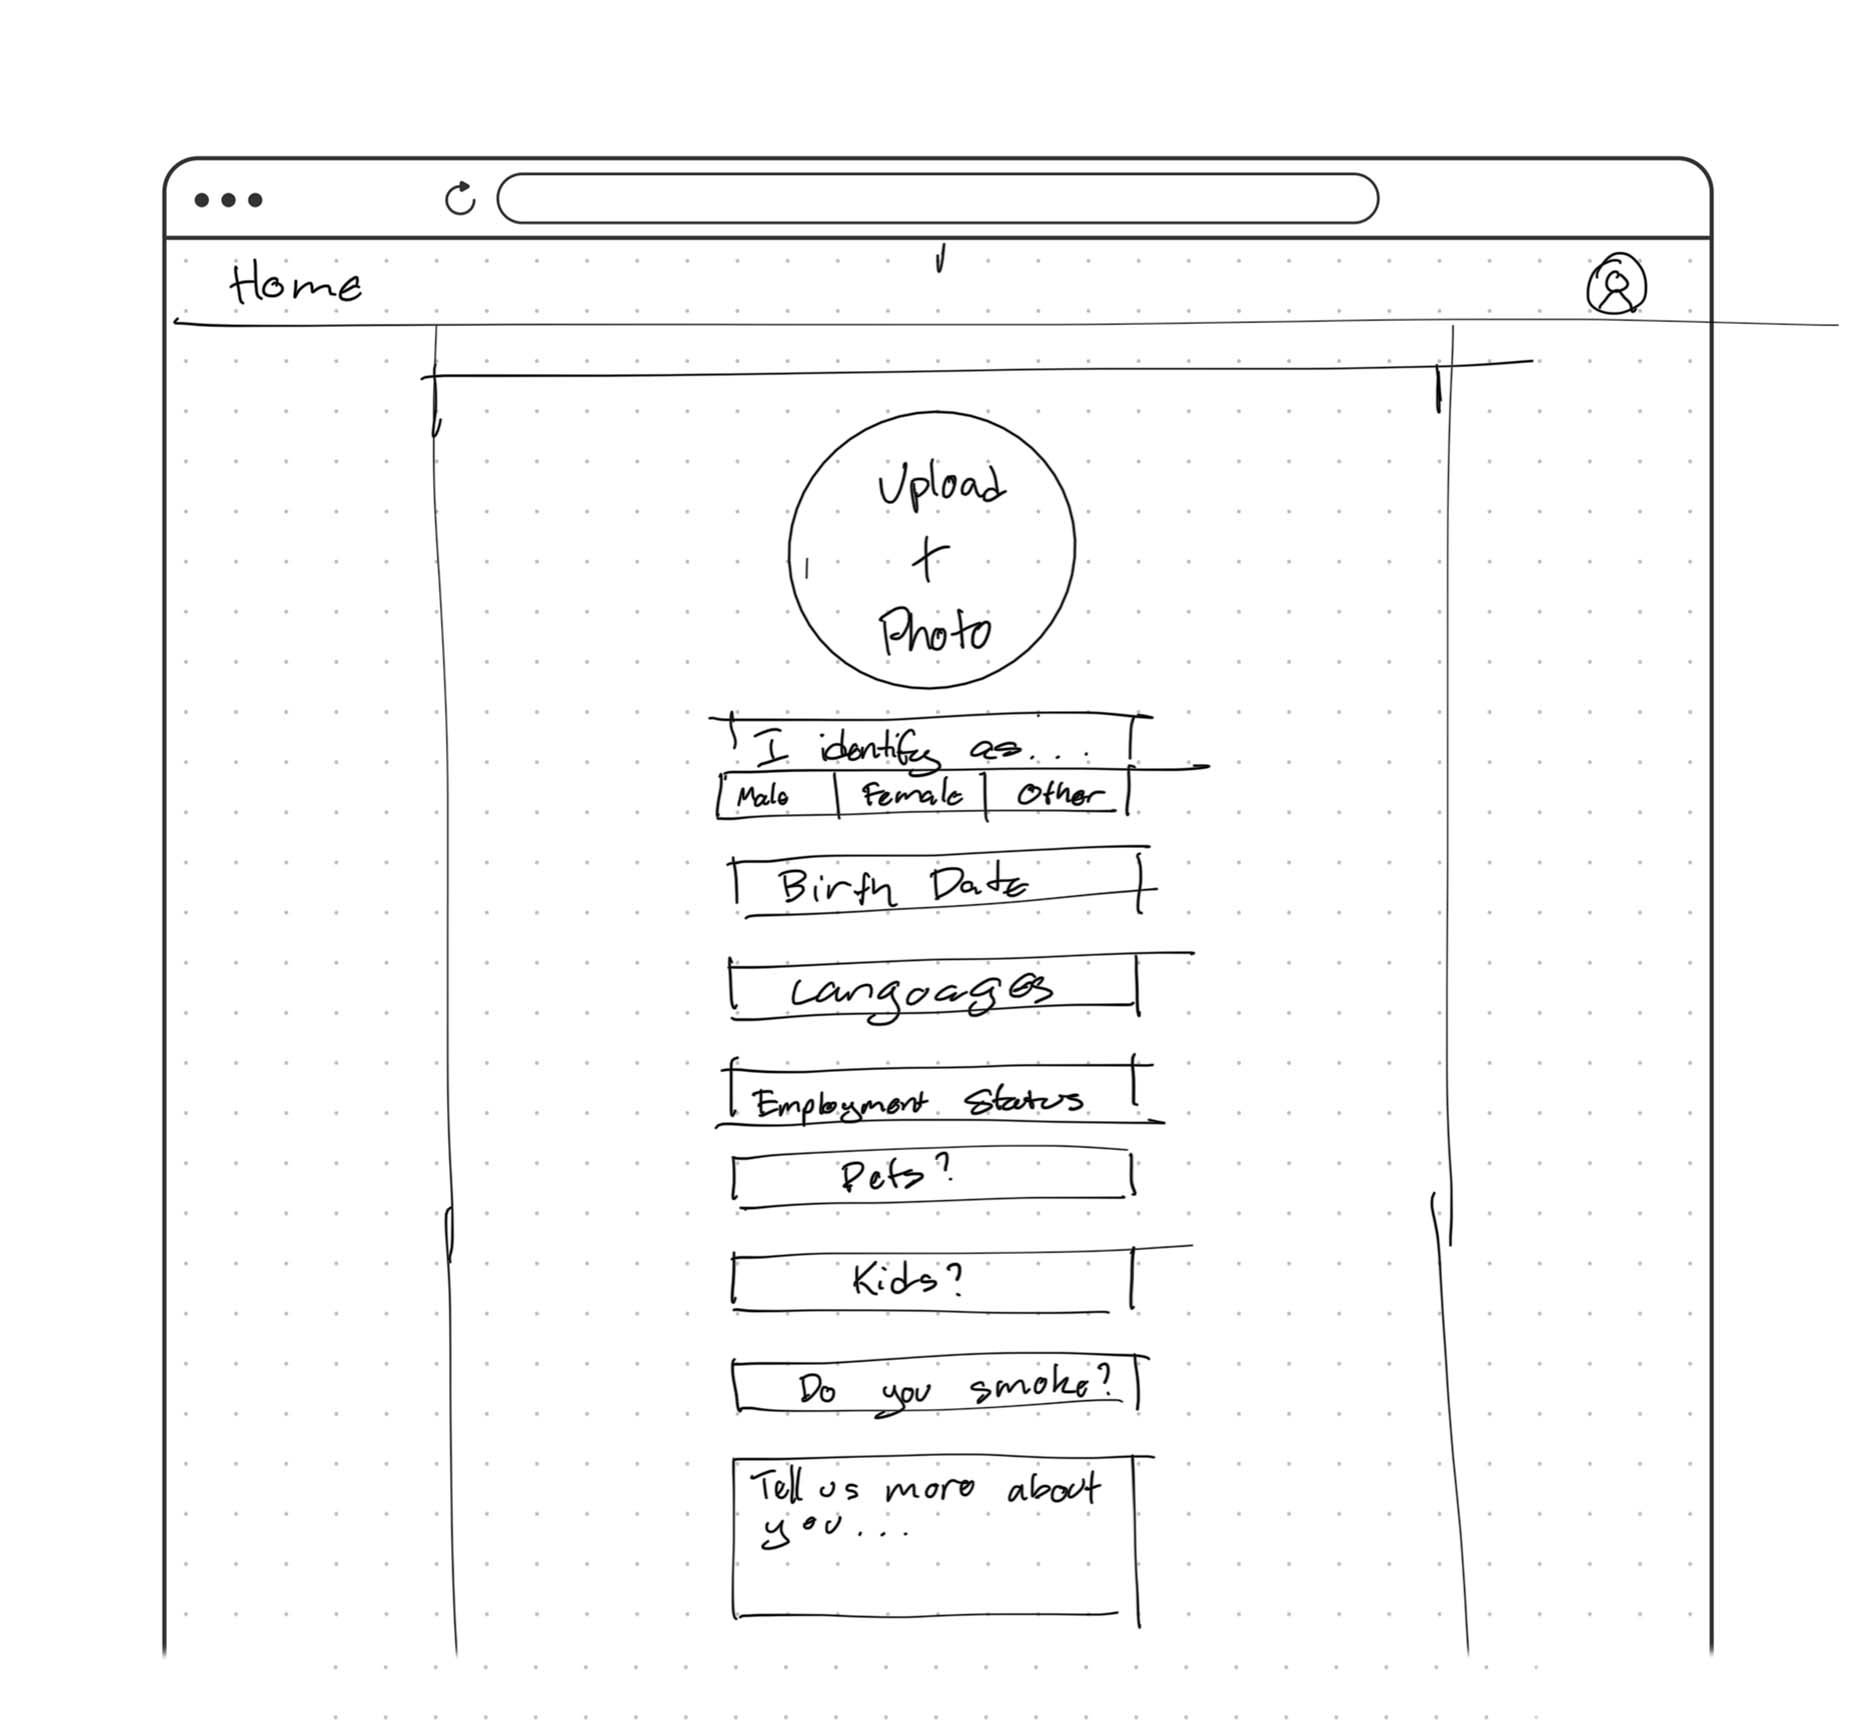 Home
Upload
+
Photo
I identify as...
Male Female Other
Birth Date
Languages
Employment Status
Pets?
Kids?
Do you smoke?
Tell us more about
you...